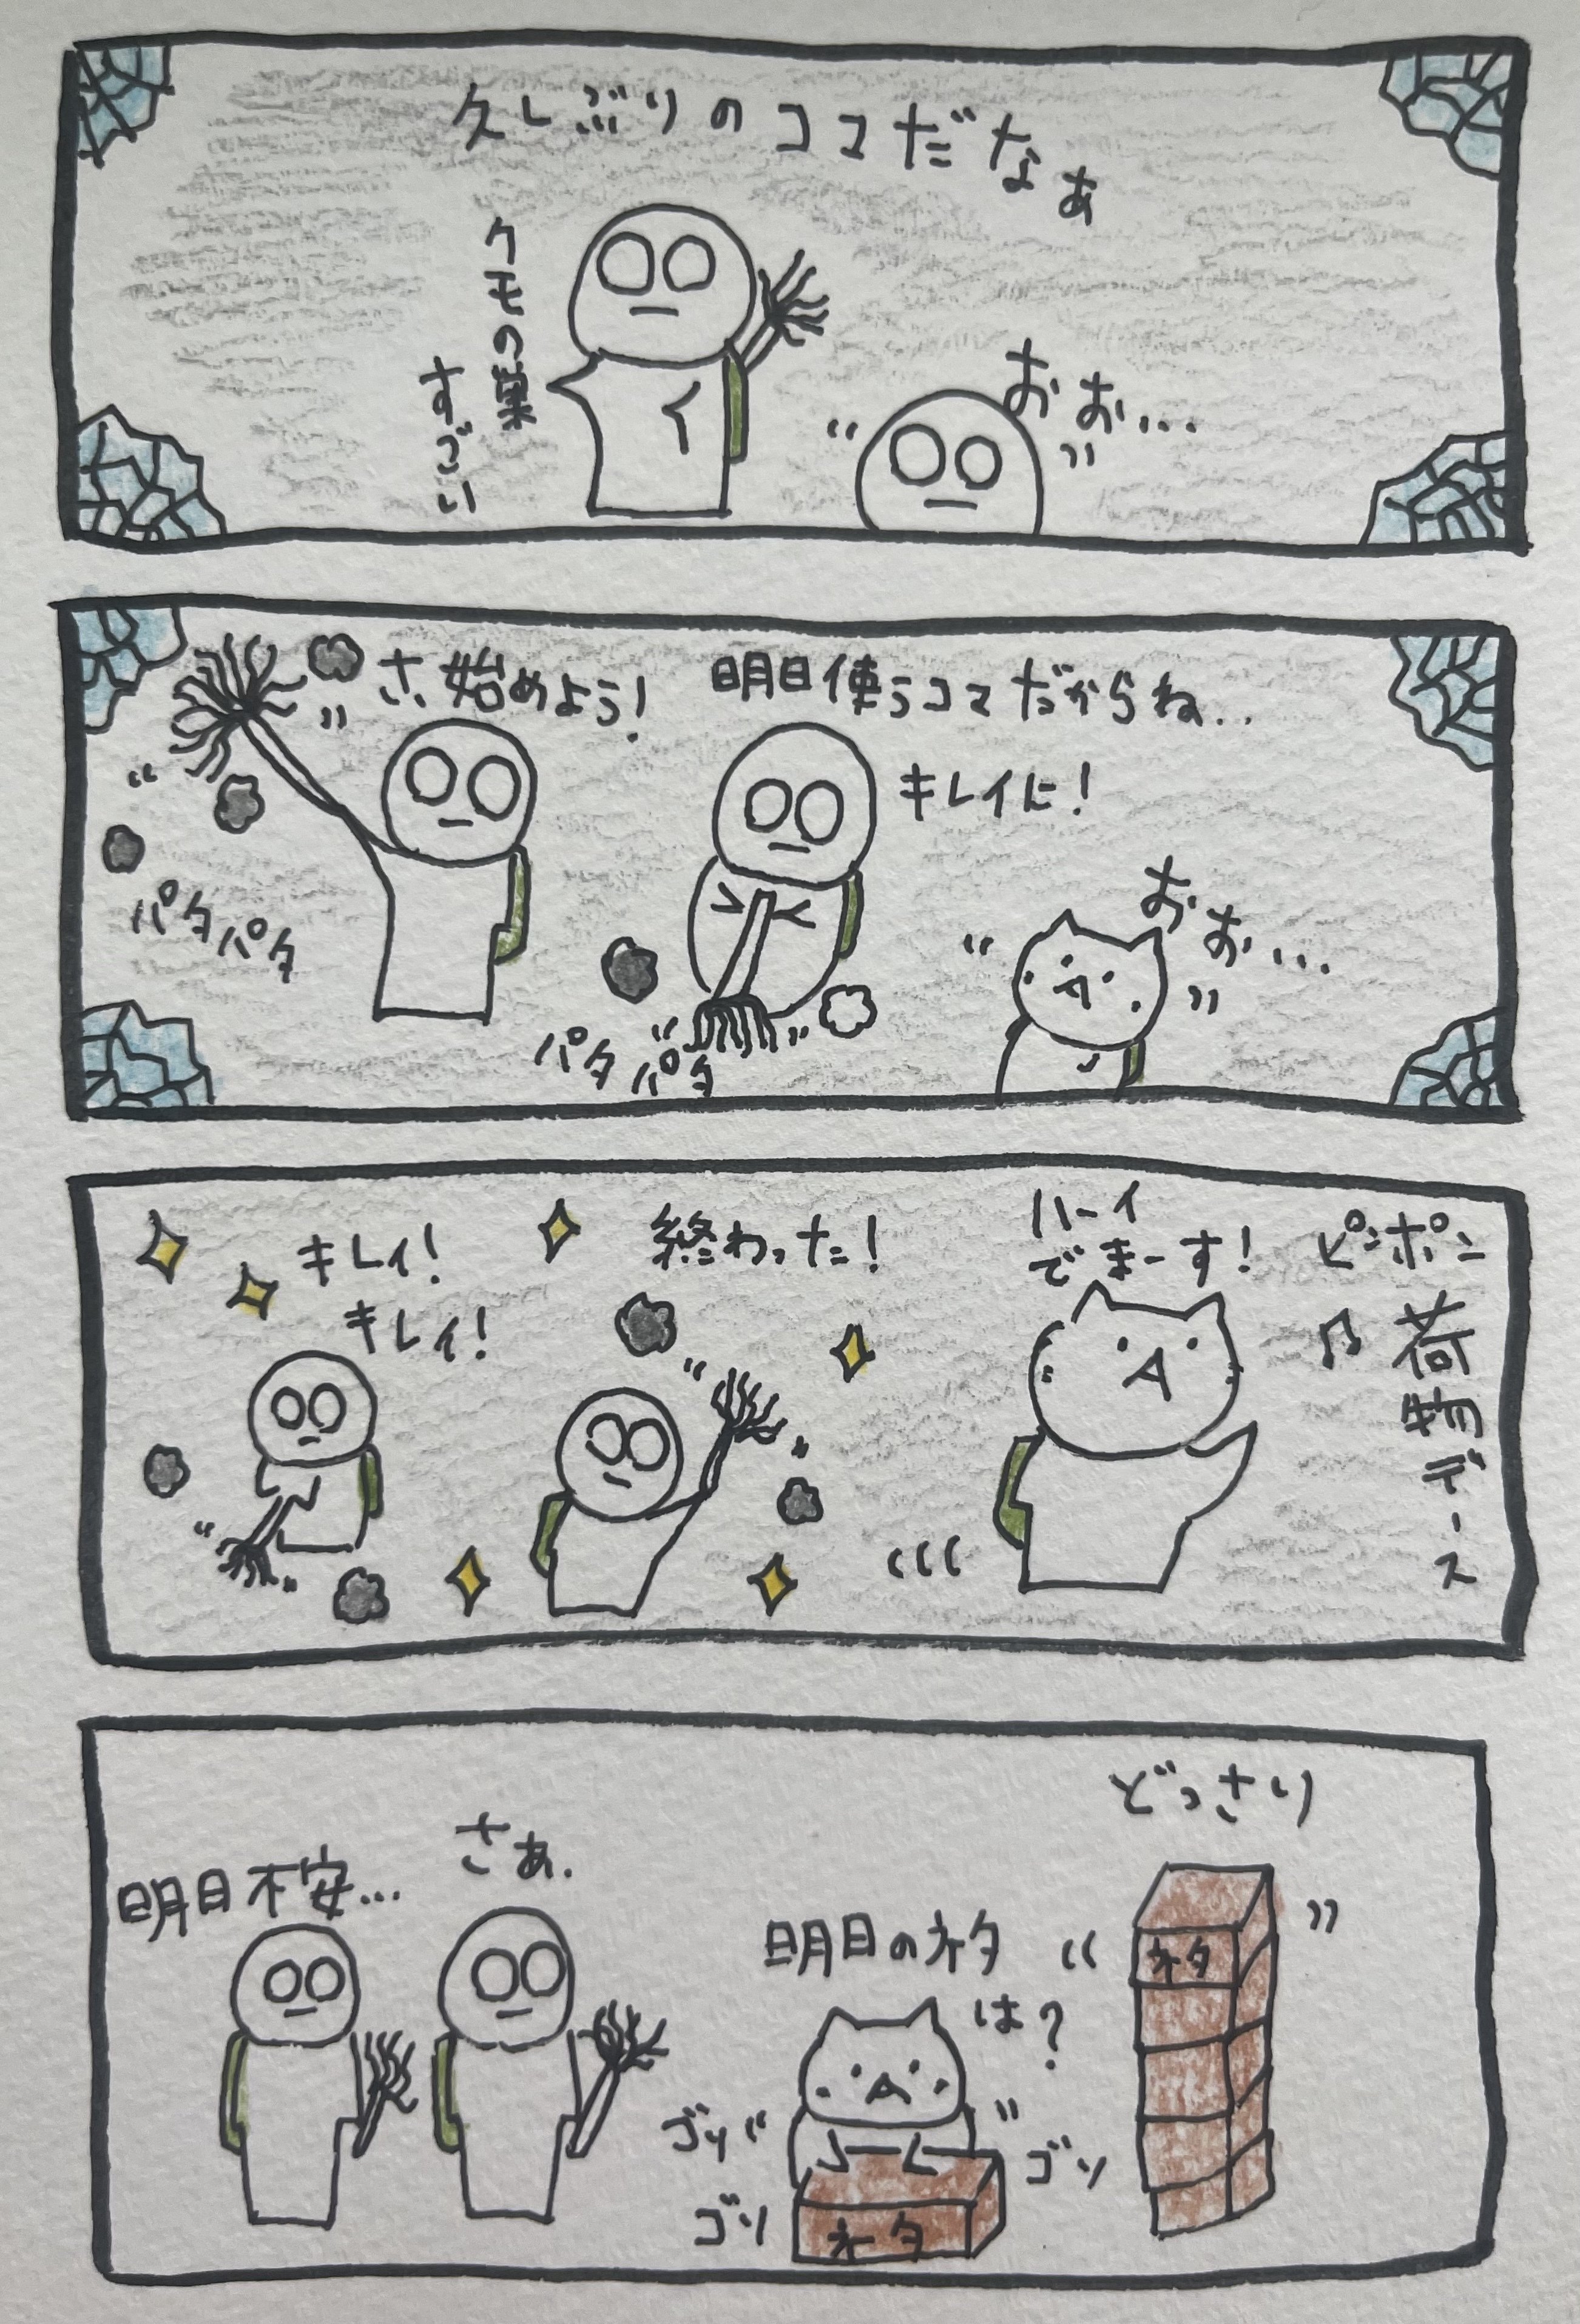 久しぶりのココだなぁ
クモの巣
すごい
おお…
さ、始めよう!
明日使うココだからね..
キレイに!
おお…
パタパタ
パタパタ
キレイ!
キレイ!
終わった!
ハーイ
でまーす!
ピンポン
荷物デース
どっさり
さあ.
明日不安…
明日のネタ
は?
ネタ
ゴソ
ゴソ
ゴソ
ネタ